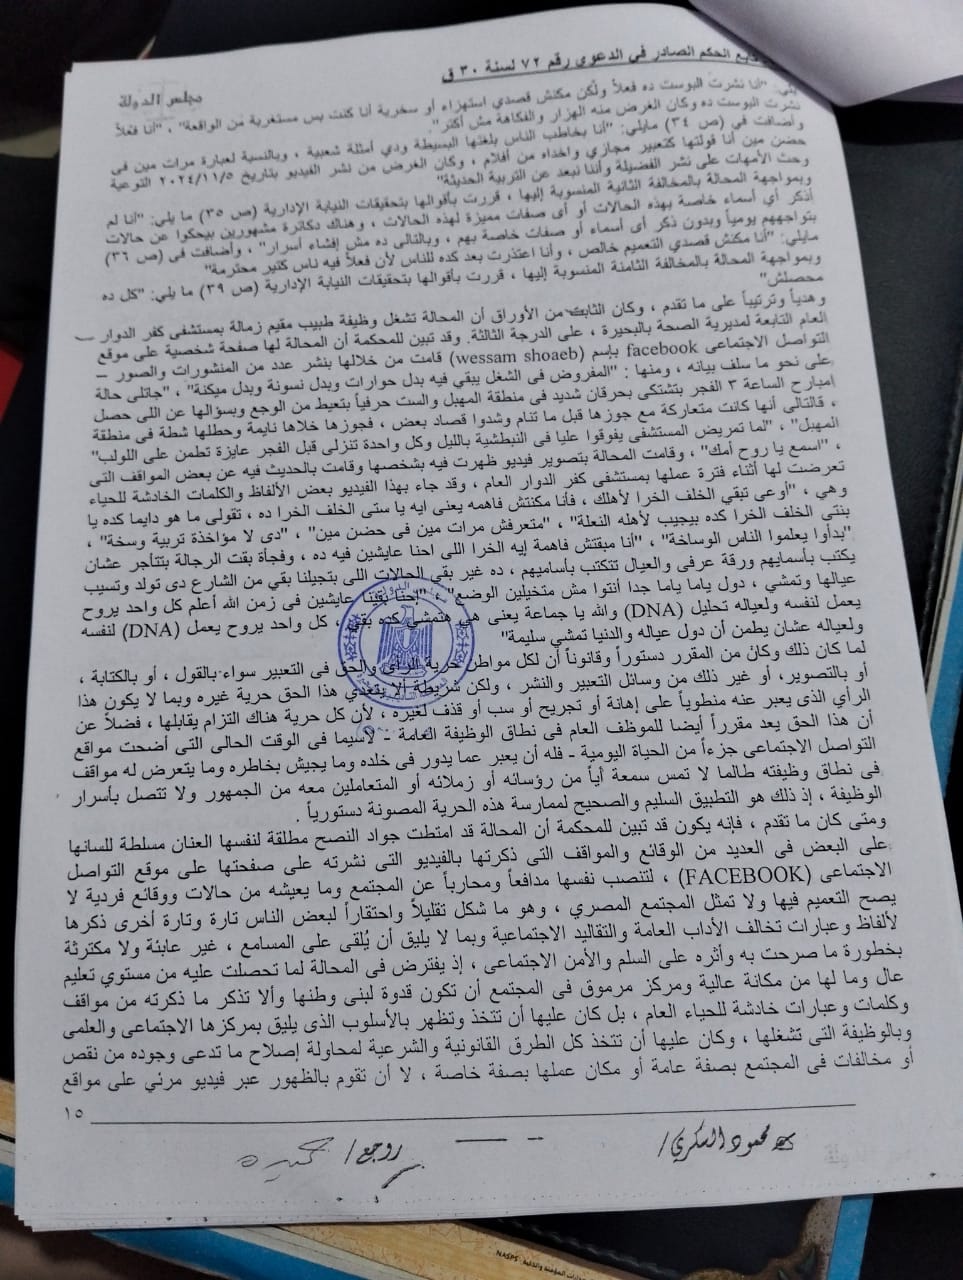 تابع الحكم الصادر في الدعوى رقم ٧٢ لسنة ٣٠ ق
مجلس الدولة
يلي: "أنا نشرت البوست ده فعلاً ولكن مكنش قصدي استهزاء أو سخرية أنا كنت بس مستغربة من الواقعة" ، "أنا فعلاً
نشرت البوست ده وكان الغرض منه الهزار والفكاهة مش أكثر".
وأضافت في (ص ٣٤) مايلي: "أنا بخاطب الناس بلغتها البسيطة ودي أمثلة شعبية ، وبالنسبة لعبارة مرات مين في
حضن مين أنا قولتها كتعبير مجازي واخداه من أفلام ، وكان الغرض من نشر الفيديو بتاريخ ٢٠٢٤/١١/٥ التوعية
وحث الأمهات على نشر الفضيلة وأننا نبعد عن التربية الحديثة"
وبمواجهة المحالة بالمخالفة الثانية المنسوبة إليها ، قررت بأقوالها بتحقيقات النيابة الإدارية (ص ٣٥) ما يلي: "أنا لم
أذكر أي أسماء خاصة بهذه الحالات أو أى صفات مميزة لهذه الحالات ، وهناك دكاترة مشهورين بيحكوا عن حالات
بتواجههم يومياً وبدون ذكر أى أسماء أو صفات خاصة بهم ، وبالتالى ده مش إفشاء أسرار" ، وأضافت فى (ص ٣٦)
مايلي: "أنا مكنش قصدي التعميم خالص ، وأنا اعتذرت بعد كده للناس لأن فعلاً فيه ناس كتير محترمة"
وبمواجهة المحالة بالمخالفة الثامنة المنسوبة إليها ، قررت بأقوالها بتحقيقات النيابة الإدارية (ص ٣٩) ما يلي: "كل ده
محصلش"
وهدياً وترتيباً على ما تقدم ، وكان الثابت من الأوراق أن المحالة تشغل وظيفة طبيب مقيم زمالة بمستشفى كفر الدوار
العام التابعة لمديرية الصحة بالبحيرة ، على الدرجة الثالثة. وقد تبين للمحكمة أن المحالة لها صفحة شخصية على موقع
التواصل الاجتماعى facebook بإسم (wessam shoaeb) قامت من خلالها بنشر عدد من المنشورات والصور –
على نحو ما سلف بيانه ، ومنها : "المفروض فى الشغل يبقي فيه بدل حوارات وبدل نسونة وبدل ميكنة" ، "جاتلى حالة
امبارح الساعة ٣ الفجر بتشتكى بحرقان شديد فى منطقة المهبل والست حرفياً بتعيط من الوجع وبسؤالها عن اللى حصل
، قالتالى أنها كانت متعاركة مع جوزها قبل ما تنام وشدوا قصاد بعض ، فجوزها خلاها نايمة وحطلها شطة فى منطقة
المهبل" ، "لما تمريض المستشفى يفوقوا عليا فى النبطشية بالليل وكل واحدة تنزلى قبل الفجر عايزة تطمن على اللولب"
، "اسمع يا روح أمك" ، وقامت المحالة بتصوير فيديو ظهرت فيه بشخصها وقامت بالحديث فيه عن بعض المواقف التى
تعرضت لها أثناء فترة عملها بمستشفى كفر الدوار العام ، وقد جاء بهذا الفيديو بعض الألفاظ والكلمات الخادشة للحياء
وهي ، "أوعى تبقي الخلف الخرا لأهلك ، فأنا مكنتش فاهمه يعنى ايه يا ستى الخلف الخرا ده ، تقولى ما هو دايما كده يا
بنتى الخلف الخرا كده بيجيب لأهله النعلة" ، "متعرفش مرات مين فى حضن مين" ، "دى لا مؤاخذة تربية وسخة" ،
"بدأوا يعلموا الناس الوساخة" ، "أنا مبقتش فاهمة إيه الخرا اللى احنا عايشين فيه ده ، وفجأة بقت الرجالة بتتأجر عشان
يكتب بأسمايهم ورقة عرفى والعيال تتكتب بأساميهم ، ده غير بقى الحالات اللى بتجيلنا بقي من الشارع دى تولد وتسيب
عيالها وتمشي ، دول ياما ياما جدا أنتوا مش متخيلين الوضع" ، "احنا بقينا عايشين فى زمن الله أعلم كل واحد يروح
يعمل لنفسه ولعياله تحليل (DNA) والله يا جماعة يعنى هي هتمشي كده بقي ، كل واحد يروح يعمل (DNA) لنفسه
ولعياله عشان يطمن أن دول عياله والدنيا تمشي سليمة"
لما كان ذلك وكان من المقرر دستوراً وقانوناً أن لكل مواطن حرية الرأى والحق فى التعبير سواء بالقول ، أو بالكتابة ،
أو بالتصوير، أو غير ذلك من وسائل التعبير والنشر ، ولكن شريطة ألا يتعدي هذا الحق حرية غيره وبما لا يكون هذا
الرأي الذى يعبر عنه منطوياً على إهانة أو تجريح أو سب أو قذف لغيره ، لأن كل حرية هناك التزام يقابلها ، فضلاً عن
أن هذا الحق يعد مقرراً أيضا للموظف العام فى نطاق الوظيفة العامة - لاسيما فى الوقت الحالى التى أضحت مواقع
التواصل الاجتماعى جزءاً من الحياة اليومية - فله أن يعبر عما يدور فى خلده وما يجيش بخاطره وما يتعرض له مواقف
فى نطاق وظيفته طالما لا تمس سمعة أياً من رؤسائه أو زملائه أو المتعاملين معه من الجمهور ولا تتصل بأسرار
الوظيفة ، إذ ذلك هو التطبيق السليم والصحيح لممارسة هذه الحرية المصونة دستورياً .
ومتى كان ما تقدم ، فإنه يكون قد تبين للمحكمة أن المحالة قد امتطت جواد النصح مطلقة لنفسها العنان مسلطة للسانها
على البعض فى العديد من الوقائع والمواقف التى ذكرتها بالفيديو التى نشرته على صفحتها على موقع التواصل
الاجتماعى (FACEBOOK) ، لتنصب نفسها مدافعاً ومحارباً عن المجتمع وما يعيشه من حالات ووقائع فردية لا
يصح التعميم فيها ولا تمثل المجتمع المصري ، وهو ما شكل تقليلاً واحتقاراً لبعض الناس تارة وتارة أخرى ذكرها
لألفاظ وعبارات تخالف الأداب العامة والتقاليد الاجتماعية وبما لا يليق أن يُلقى على المسامع ، غير عابئة ولا مكترثة
بخطورة ما صرحت به وأثره على السلم والأمن الاجتماعى ، إذ يفترض فى المحالة لما تحصلت عليه من مستوي تعليم
عال وما لها من مكانة عالية ومركز مرموق فى المجتمع أن تكون قدوة لبنى وطنها وألا تذكر ما ذكرته من مواقف
وكلمات وعبارات خادشة للحياء العام ، بل كان عليها أن تتخذ وتظهر بالأسلوب الذى يليق بمركزها الاجتماعى والعلمى
وبالوظيفة التى تشغلها ، وكان عليها أن تتخذ كل الطرق القانونية والشرعية لمحاولة إصلاح ما تدعى وجوده من نقص
أو مخالفات فى المجتمع بصفة عامة أو مكان عملها بصفة خاصة ، لا أن تقوم بالظهور عبر فيديو مرئي على مواقع
١٥
محمود السكري/
روجع/
NASPS